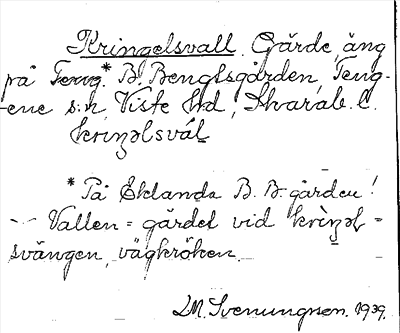 Kringelsvall. Gärde, äng
på Teng.* B. Bengtsgården, Teng-
-ene s:n Viste hd, Skarab. l.
kriŋəlsvál
* På Eklanda B. B. gården!
Vallen = gärdet vid kriŋəl =
svängen, vägkröken.
LM. Svenungsson. 1939.